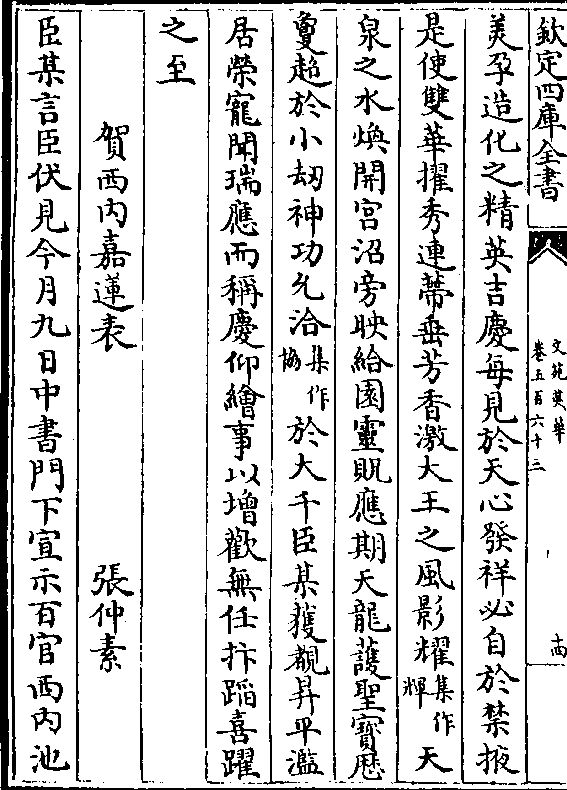 欽定四庫全書
文苑英華
卷五百六十三
十四
美孕造化之精英吉慶每見於天心發祥必自於禁掖
是使雙華擢秀連蔕垂芳香激大王之風影耀集作輝天
泉之水煥開宮沼旁映給園靈貺應期天龍護聖寳厯
敻超於小劫神功允洽集作協於大千臣某獲覩昇平濫
居榮寵聞瑞應而稱慶仰繪事以增歡無任抃蹈喜躍
之至
賀西内嘉蓮表 張仲素
臣某言臣伏見今月九日中書門下宣示百官西内池